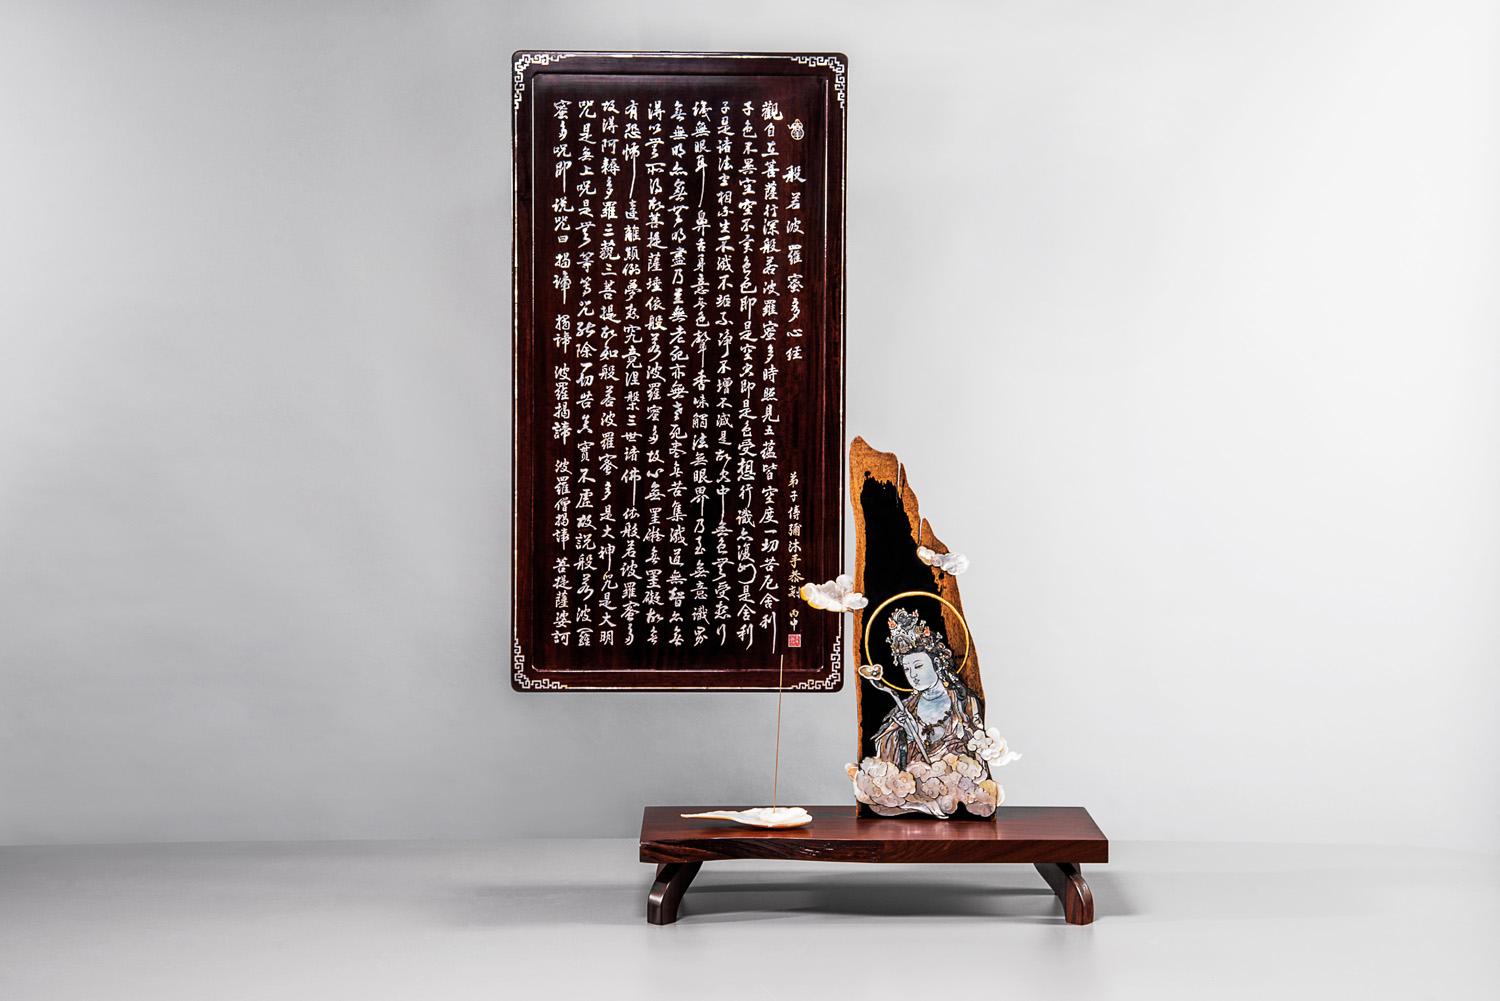 般若波羅蜜多心經
觀自在菩薩行深般若波羅蜜多時照見五蘊皆空度一切苦厄舍利
子色不異空空不異色色即是空空即是色受想行識亦復如是舍利
子是諸法空相不生不滅不垢不淨不增不減是故空中無色無受想行
識無眼耳鼻舌身意無色聲香味觸法無眼界乃至無意識界
無無明亦無無明盡乃至無老死亦無老死盡無苦集滅道無智亦無
得以無所得故菩提薩埵依般若波羅蜜多故心無罣礙無罣礙故無
有恐怖遠離顛倒夢想究竟涅槃三世諸佛依般若波羅蜜多
故得阿耨多羅三藐三菩提故知般若波羅蜜多是大神咒是大明
咒是無上咒是無等等咒能除一切苦真實不虛故說般若波羅
蜜多咒即說咒曰 揭諦 揭諦 波羅揭諦 波羅僧揭諦 菩提薩婆訶
弟子傅彌沐手恭書 丙申